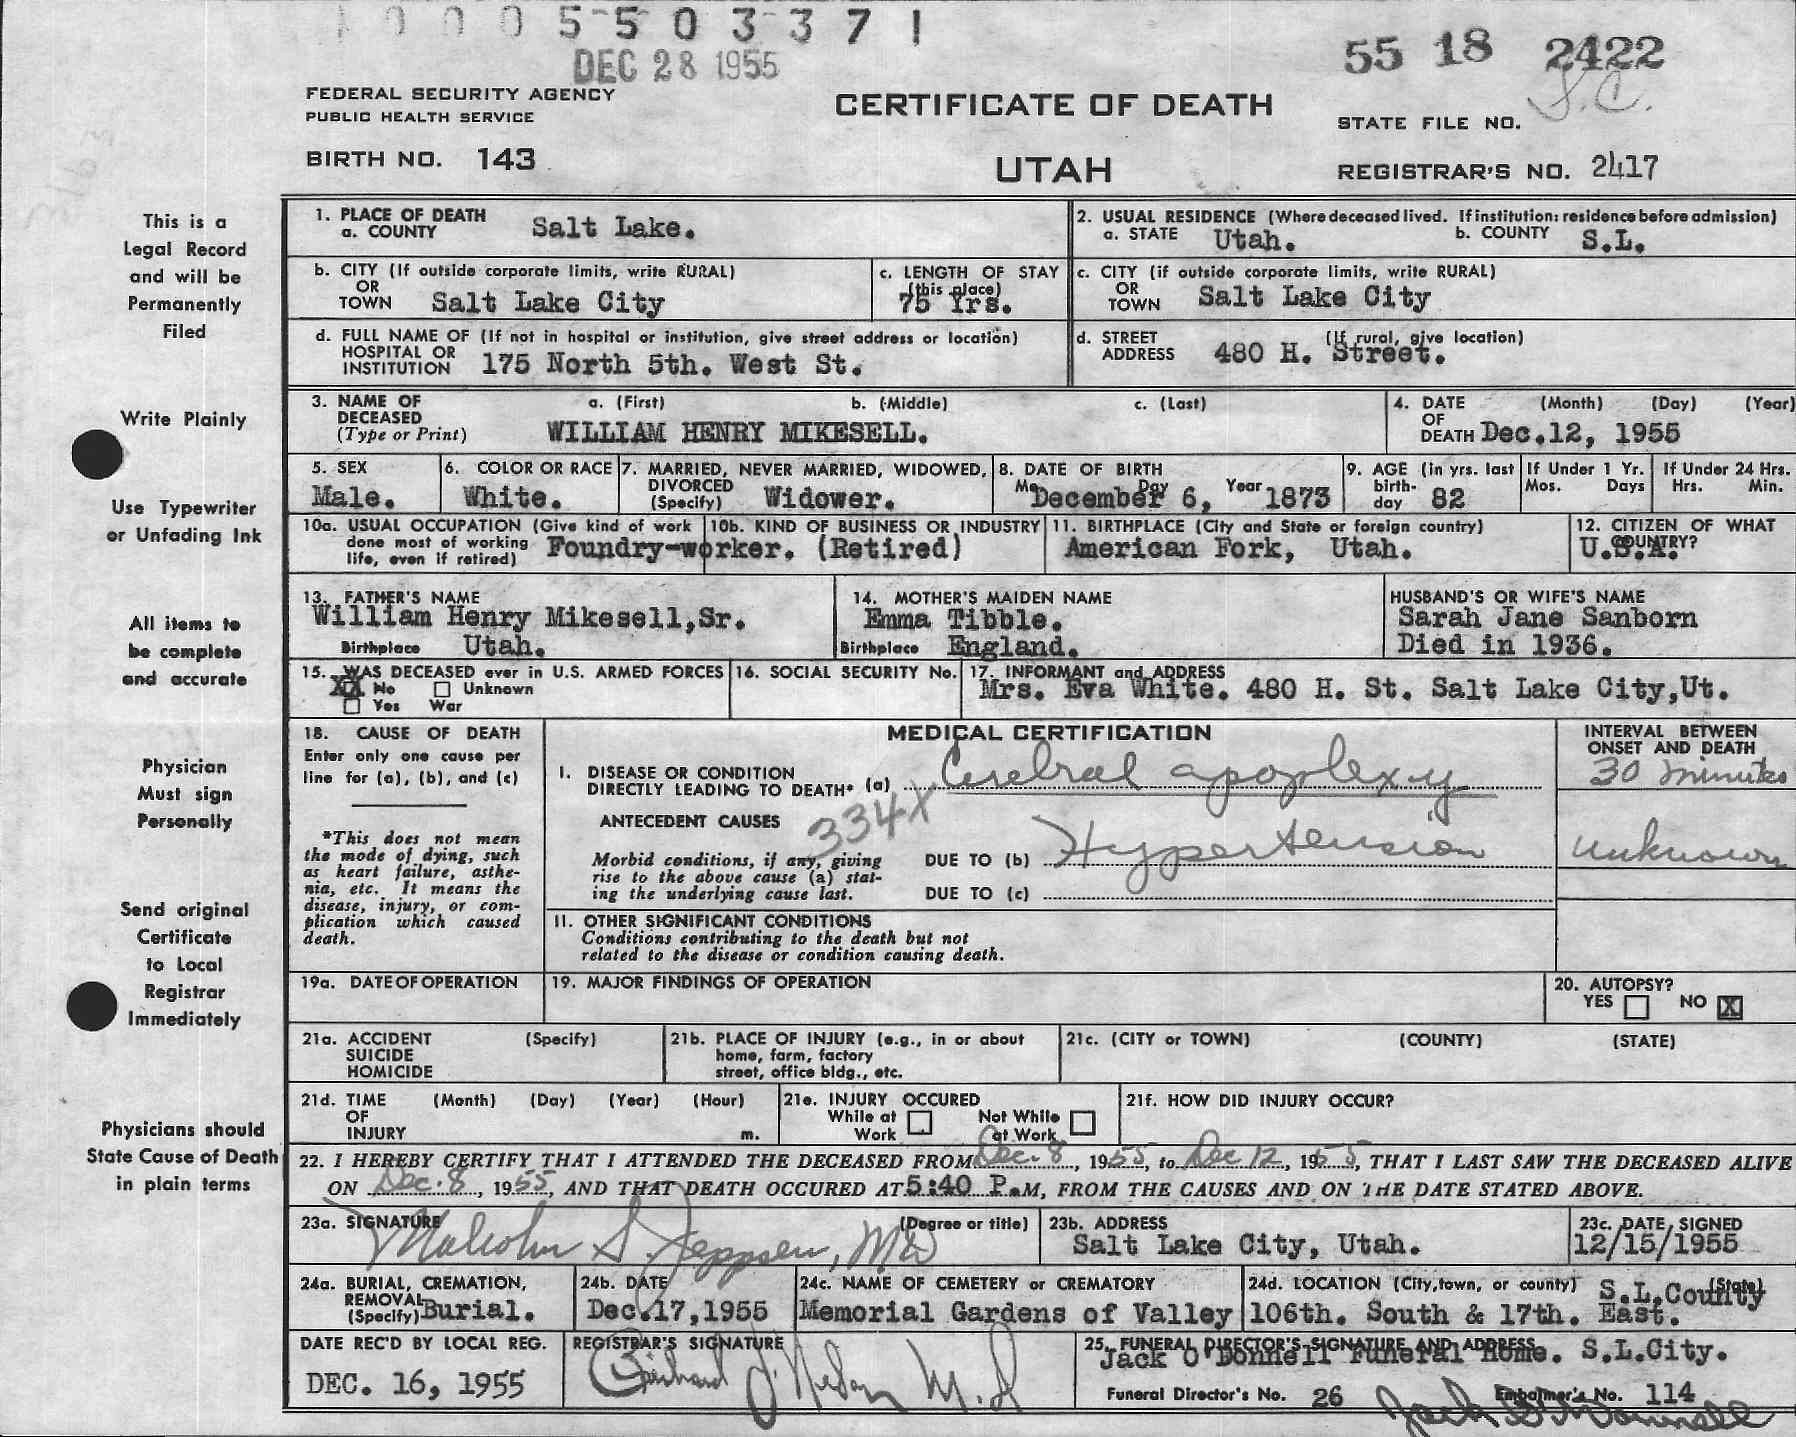 1 0 0 0 5 5 0 3 3 7 1
DEC 28 1955
55 18 2422
S.C.
FEDERAL SECURITY AGENCY
PUBLIC HEALTH SERVICE
CERTIFICATE OF DEATH
STATE FILE NO.
BIRTH NO. 143
UTAH
REGISTRAR'S NO. 2417
This is a
Legal Record
and will be
Permanently
Filed
Write Plainly
Use Typewriter
or Unfading Ink
All items to
be complete
and accurate
Physician
Must sign
Personally
Send original
Certificate
to Local
Registrar
Immediately
Physicians should
State Cause of Death
in plain terms
1. PLACE OF DEATH
a. COUNTY Salt Lake.
2. USUAL RESIDENCE (Where deceased lived. If institution: residence before admission)
a. STATE Utah. b. COUNTY S.L.
b. CITY (If outside corporate limits, write RURAL)
OR
TOWN Salt Lake City
c. LENGTH OF STAY
(this place)
75 Yrs.
c. CITY (if outside corporate limits, write RURAL)
OR
TOWN Salt Lake City
d. FULL NAME OF (If not in hospital or institution, give street address or location)
HOSPITAL OR
INSTITUTION 175 North 5th. West St.
d. STREET (If rural, give location)
ADDRESS 480 H. Street.
3. NAME OF a. (First) b. (Middle) c. (Last)
DECEASED
(Type or Print) WILLIAM HENRY MIKESELL.
4. DATE (Month) (Day) (Year)
OF
DEATH Dec.12, 1955
5. SEX
Male.
6. COLOR OR RACE
White.
7. MARRIED, NEVER MARRIED, WIDOWED,
DIVORCED
(Specify) Widower.
8. DATE OF BIRTH
Mo. Day Year
December 6, 1873
9. AGE (in yrs. last
birth-
day 82
If Under 1 Yr.
Mos. Days
If Under 24 Hrs.
Hrs. Min.
10a. USUAL OCCUPATION (Give kind of work
done most of working
life, even if retired)
10b. KIND OF BUSINESS OR INDUSTRY
Foundry-worker. (Retired)
11. BIRTHPLACE (City and State or foreign country)
American Fork, Utah.
12. CITIZEN OF WHAT
COUNTRY?
U.S.A.
13. FATHER'S NAME
William Henry Mikesell,Sr.
Birthplace Utah.
14. MOTHER'S MAIDEN NAME
Emma Tibble.
Birthplace England.
HUSBAND'S OR WIFE'S NAME
Sarah Jane Sanborn
Died in 1936.
15. WAS DECEASED ever in U.S. ARMED FORCES
XX No ☐ Unknown
☐ Yes War
16. SOCIAL SECURITY No.
17. INFORMANT and ADDRESS
Mrs. Eva White. 480 H. St. Salt Lake City,Ut.
18. CAUSE OF DEATH
Enter only one cause per
line for (a), (b), and (c)
*This does not mean
the mode of dying, such
as heart failure, asthe-
nia, etc. It means the
disease, injury, or com-
plication which caused
death.
MEDICAL CERTIFICATION
INTERVAL BETWEEN
ONSET AND DEATH
I. DISEASE OR CONDITION
DIRECTLY LEADING TO DEATH* (a) Cerebral apoplexy 30 minutes
334X
ANTECEDENT CAUSES
Morbid conditions, if any, giving
rise to the above cause (a) stat-
ing the underlying cause last.
DUE TO (b) Hypertension unknown
DUE TO (c)
II. OTHER SIGNIFICANT CONDITIONS
Conditions contributing to the death but not
related to the disease or condition causing death.
19a. DATE OF OPERATION
19. MAJOR FINDINGS OF OPERATION
20. AUTOPSY?
YES ☐ NO X
21a. ACCIDENT (Specify)
SUICIDE
HOMICIDE
21b. PLACE OF INJURY (e.g., in or about
home, farm, factory
street, office bldg., etc.
21c. (CITY or TOWN) (COUNTY) (STATE)
21d. TIME (Month) (Day) (Year) (Hour)
OF
INJURY m.
21e. INJURY OCCURED
While at Not While
Work ☐ at Work ☐
21f. HOW DID INJURY OCCUR?
22. I HEREBY CERTIFY THAT I ATTENDED THE DECEASED FROM Dec. 8, 1955, to Dec 12, 1955, THAT I LAST SAW THE DECEASED ALIVE
ON Dec. 8, 1955, AND THAT DEATH OCCURED AT 5:40 P.M, FROM THE CAUSES AND ON THE DATE STATED ABOVE.
23a. SIGNATURE (Degree or title)
Malcolm S. Jeppsen, MD
23b. ADDRESS
Salt Lake City, Utah.
23c. DATE SIGNED
12/15/1955
24a. BURIAL, CREMATION,
REMOVAL
(Specify) Burial.
24b. DATE
Dec.17,1955
24c. NAME OF CEMETERY or CREMATORY
Memorial Gardens of Valley
24d. LOCATION (City, town, or county) (State)
S.L.County
106th. South & 17th. East.
DATE REC'D BY LOCAL REG.
DEC. 16, 1955
REGISTRAR'S SIGNATURE
M.D
25. FUNERAL DIRECTOR'S SIGNATURE AND ADDRESS
Jack O'Donnell Funeral Home. S.L.City.
Funeral Director's No. 26 Embalmer's No. 114
Jack O'Donnell